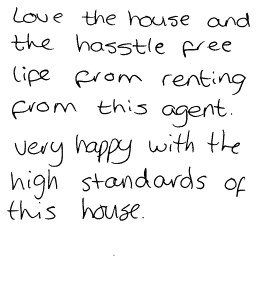 Love the house and
the hasstle free
life from renting
from this agent.
very happy with the
high standards of
this house.